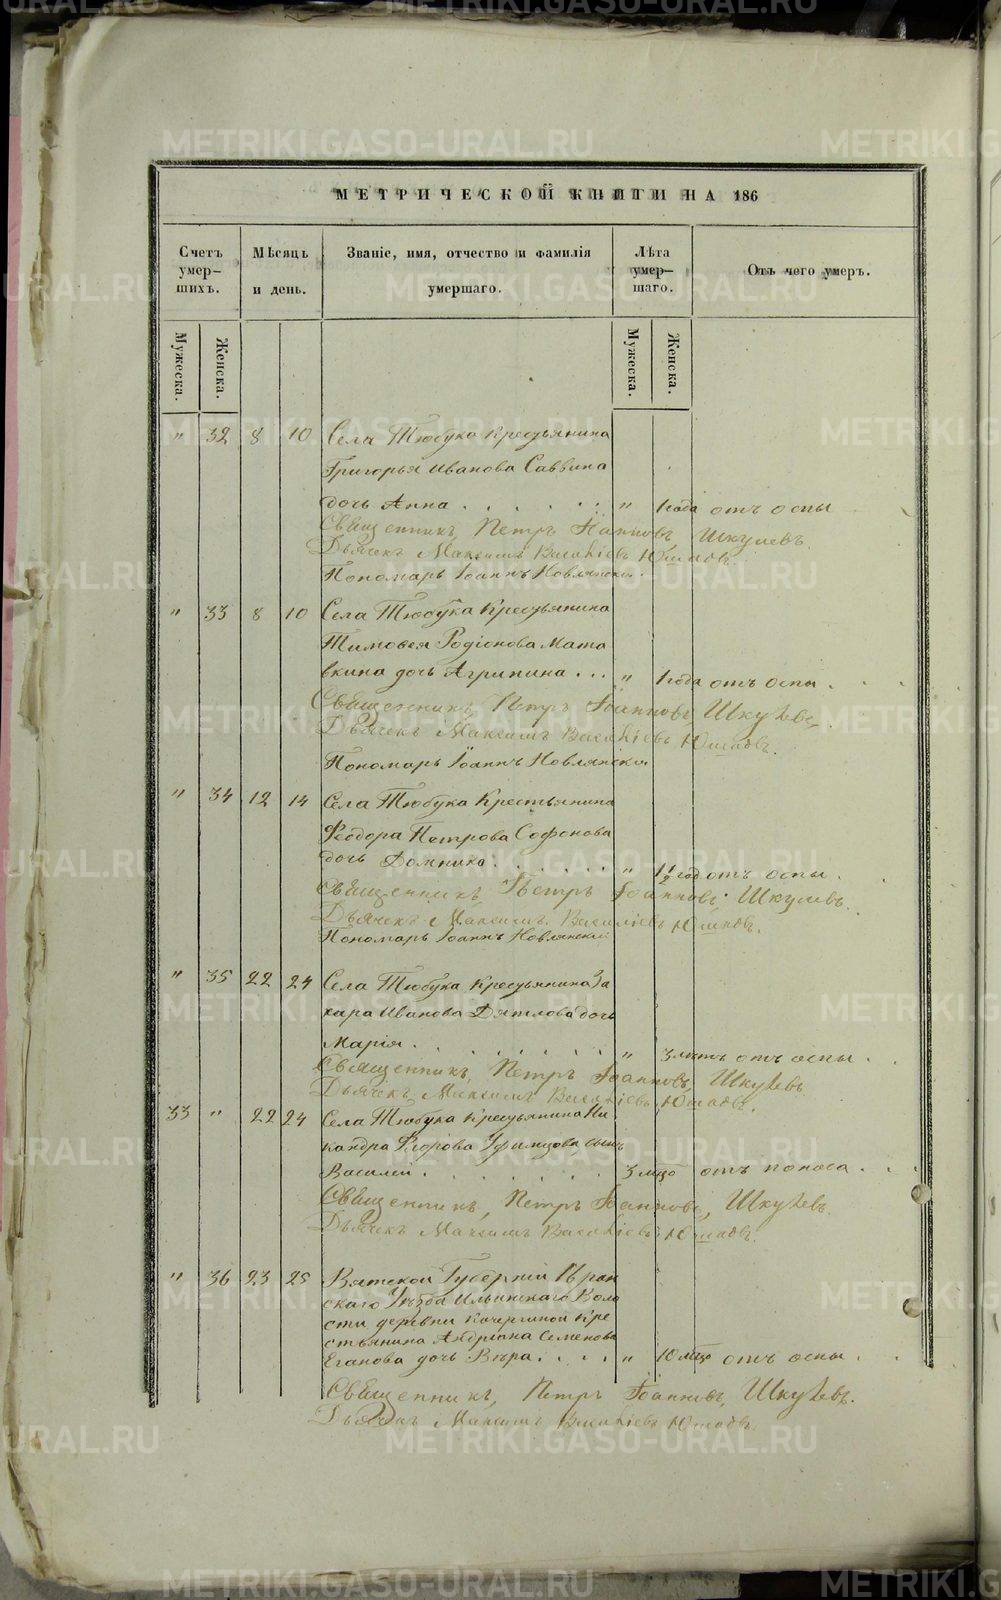 МЕТРИЧЕСКОЙ КНИГИ НА 186
Счетъ умер- шихъ.
Мѣсяцъ и день.
Званіе, имя, отчество и фамилія умершаго.
Лѣта умер- шаго.
Отъ чего умеръ.
Мужеска. Женска. Мужеска. Женска.
" 32 8 10 Села Тюбука Крестьянина
Григорья Иванова Саввина
дочь Анна . . . . . " 1 года отъ оспы
Священникъ Петръ Іоанновъ Шкулевъ.
Дьячекъ Максимъ Василіевъ Юшковъ.
Пономарь Іоаннъ Новлянскій.
" 33 8 10 Села Тюбука Крестьянина
Тимофея Родіонова Мата
вкина дочь Агрипина . . . " 1 года отъ оспы . . .
Священникъ, Петръ Іоанновъ, Шкулевъ.
Дьячекъ Максимъ Василіевъ Юшковъ.
Пономарь Іоаннъ Новлянскій
" 34 12 14 Села Тюбука Крестьянина
Феодора Петрова Софонова
дочь Домника . . . . . " 1 1/2 год отъ оспы .
Священникъ, Петръ Іоанновъ Шкулевъ.
Дьячекъ Максимъ Василіевъ Юшковъ.
Пономарь Іоаннъ Новлянскій
" 35 22 24 Села Тюбука Крестьянина За
хара Иванова Дятлова дочь
Марія . . . . . . " 3 лѣтъ отъ оспы . .
Священникъ, Петръ Іоанновъ, Шкулевъ
Дьячекъ, Максимъ Василіевъ, Юшковъ.
33 " 22 24 Села Тюбука Крестьянина Ни
кандра Егорова Уфимцова сынъ
Василій . . . . . . 3 мцо отъ поноса . . .
Священникъ, Петръ Іоанновъ, Шкулевъ.
Дьячекъ Максимъ Василіевъ Юшковъ.
" 36 23 25 Вятской Губерніи Яран
скаго Уѣзда Ильинскаго Воло
сти деревни Качергиной Кре
стьянина Андріана Семенова
Еганова дочь Вѣра . . . . " 10 мцо отъ оспы . .
Священникъ, Петръ Іоанновъ, Шкулевъ.
Дьячекъ Максимъ Василіевъ Юшковъ.
METRIKI.GASO-URAL.RU